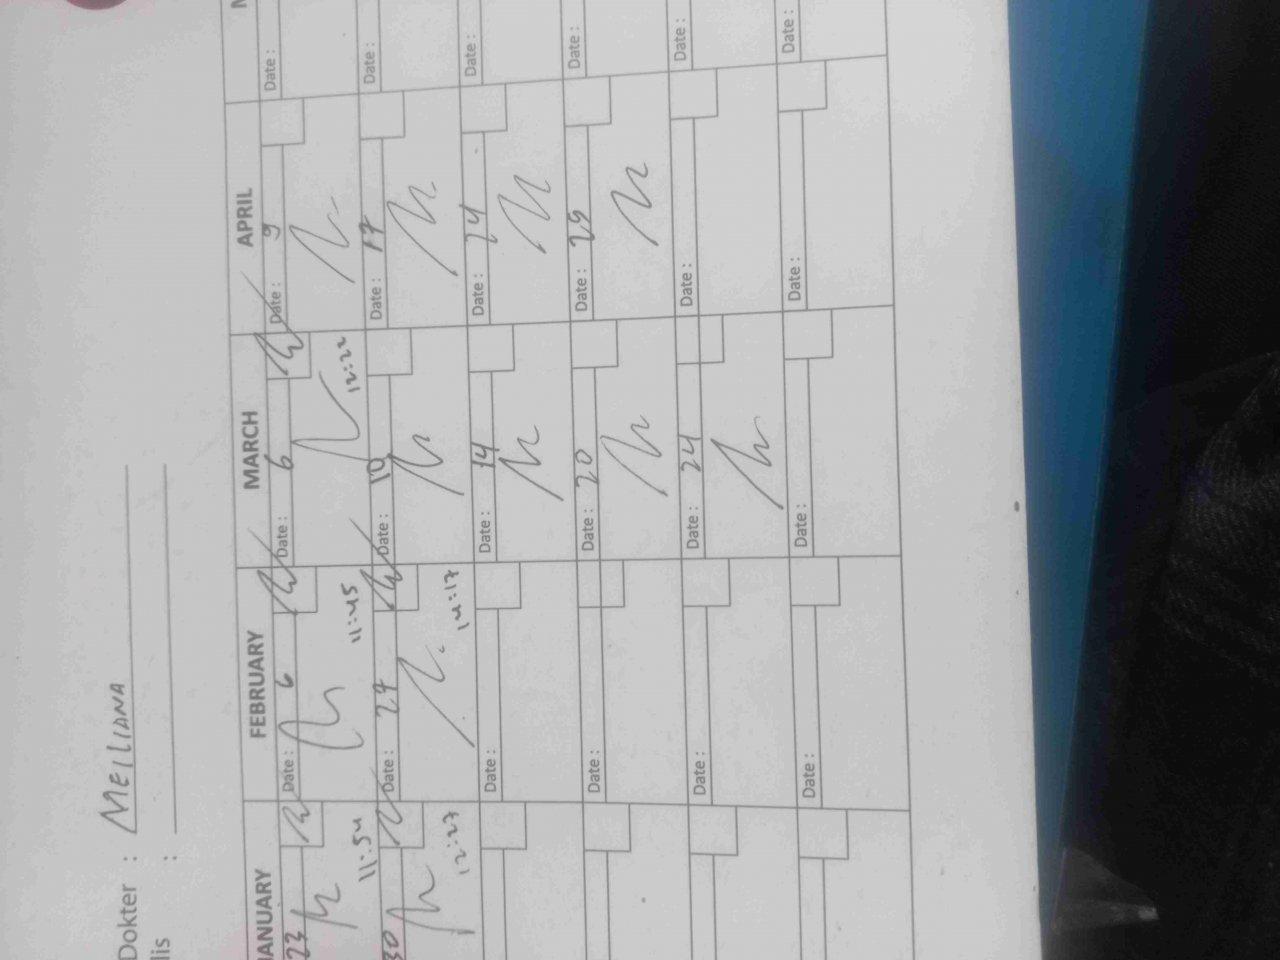 Dokter : MEILIANA
lis :
ANUARY FEBRUARY MARCH APRIL
23 Date : 6 Date : 6 Date : 9 Date :
11:54 11:45 12:22
30 Date : 27 Date : 10 Date : 17 Date :
12:27 14:17
Date : Date : 14 Date : 24 Date :
Date : 20 Date : 25 Date :
Date : Date : 24 Date : Date :
Date : Date : Date : Date :